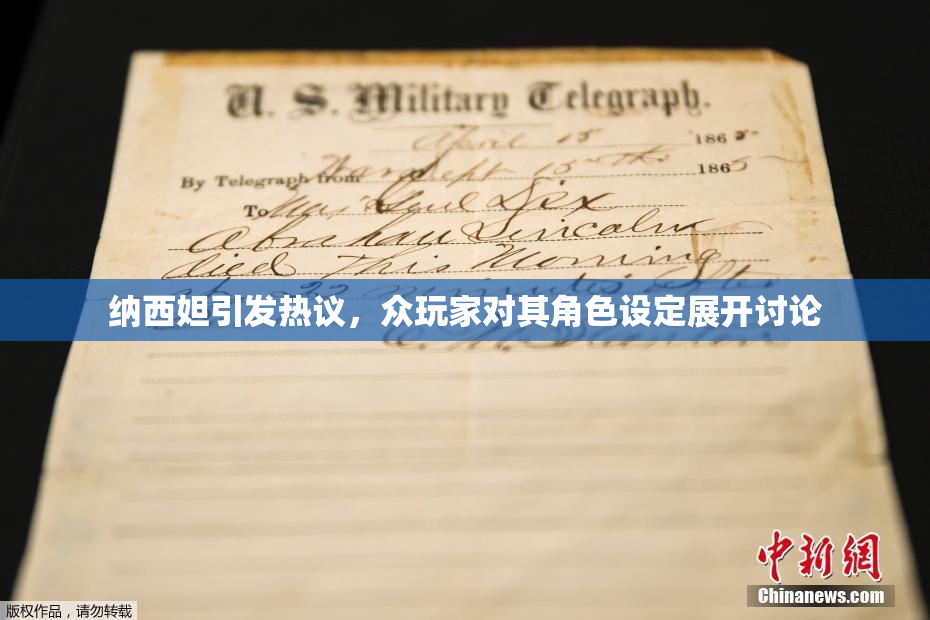 U. S. Military Telegraph.
April 15 1865
By Telegraph from War Dept 15th 1865
To Maj Genl Dix
Abraham Lincoln
died This Morning
at 22 minutes after
纳西妲引发热议，众玩家对其角色设定展开讨论
E. M. Stanton
中新网
Chinanews.com
版权作品，请勿转载